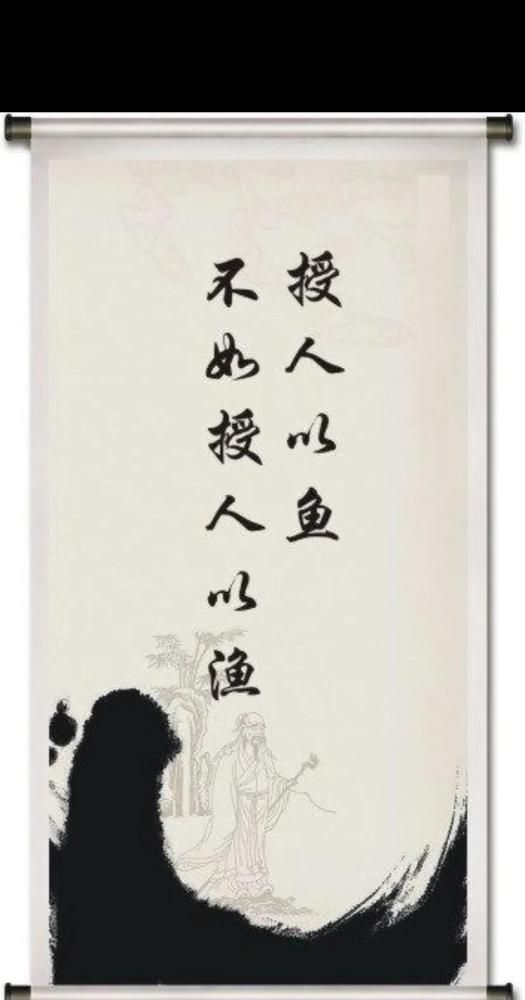 授人以鱼
不如授人以渔